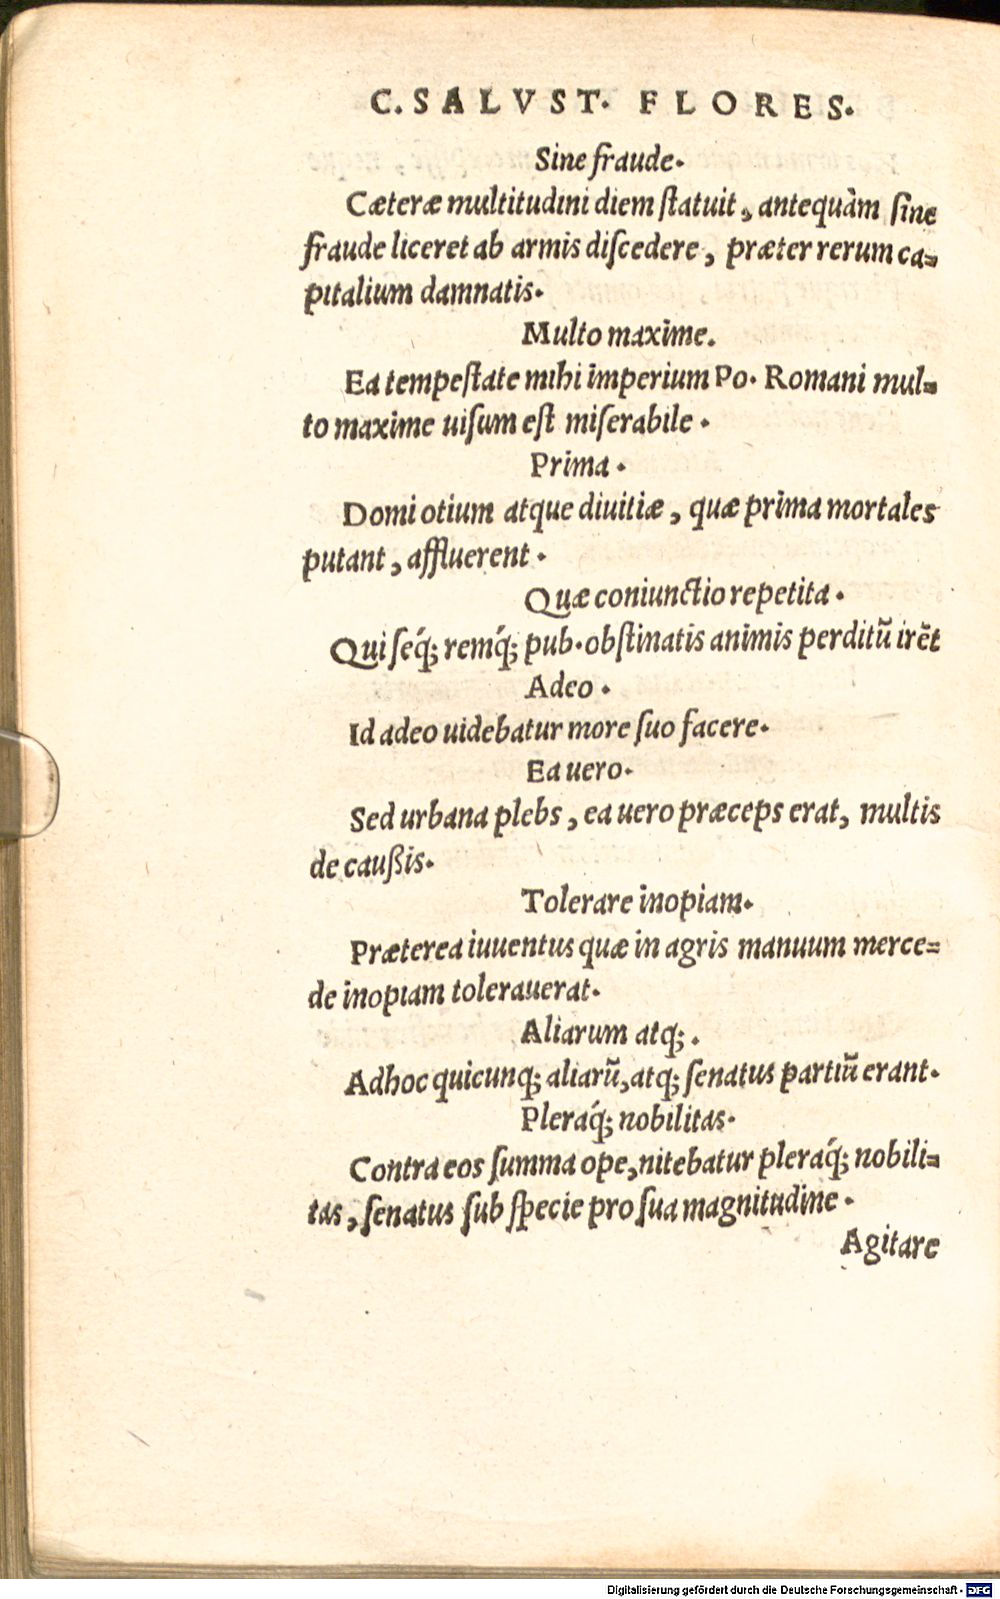 C. SALVST. FLORES.
Sine fraude.
Cæteræ multitudini diem ſtatuit, antequàm ſine
fraude liceret ab armis diſcedere, præter rerum ca=
pitalium damnatis.
Multo maxime.
Ea tempeſtate mihi imperium Po. Romani mul=
to maxime uiſum eſt miſerabile.
Prima.
Domi otium atque diuitiæ, quæ prima mortales
putant, affluerent.
Quæ coniunctio repetita.
Qui ſeq́; remq́; pub. obſtinatis animis perditũ irẽt
Adeo.
Id adeo uidebatur more ſuo facere.
Ea uero.
Sed urbana plebs, ea uero præceps erat, multis
de cauſſis.
Tolerare inopiam.
Præterea iuuentus quæ in agris manuum merce=
de inopiam tolerauerat.
Aliarum atq;.
Adhoc quicunq; aliarũ, atq; ſenatus partiũ erant.
Pleraq́; nobilitas.
Contra eos ſumma ope, nitebatur pleraq́; nobili=
tas, ſenatus ſub ſpecie pro ſua magnitudine.
Agitare
Digitalisierung gefördert durch die Deutsche Forschungsgemeinschaft - DFG